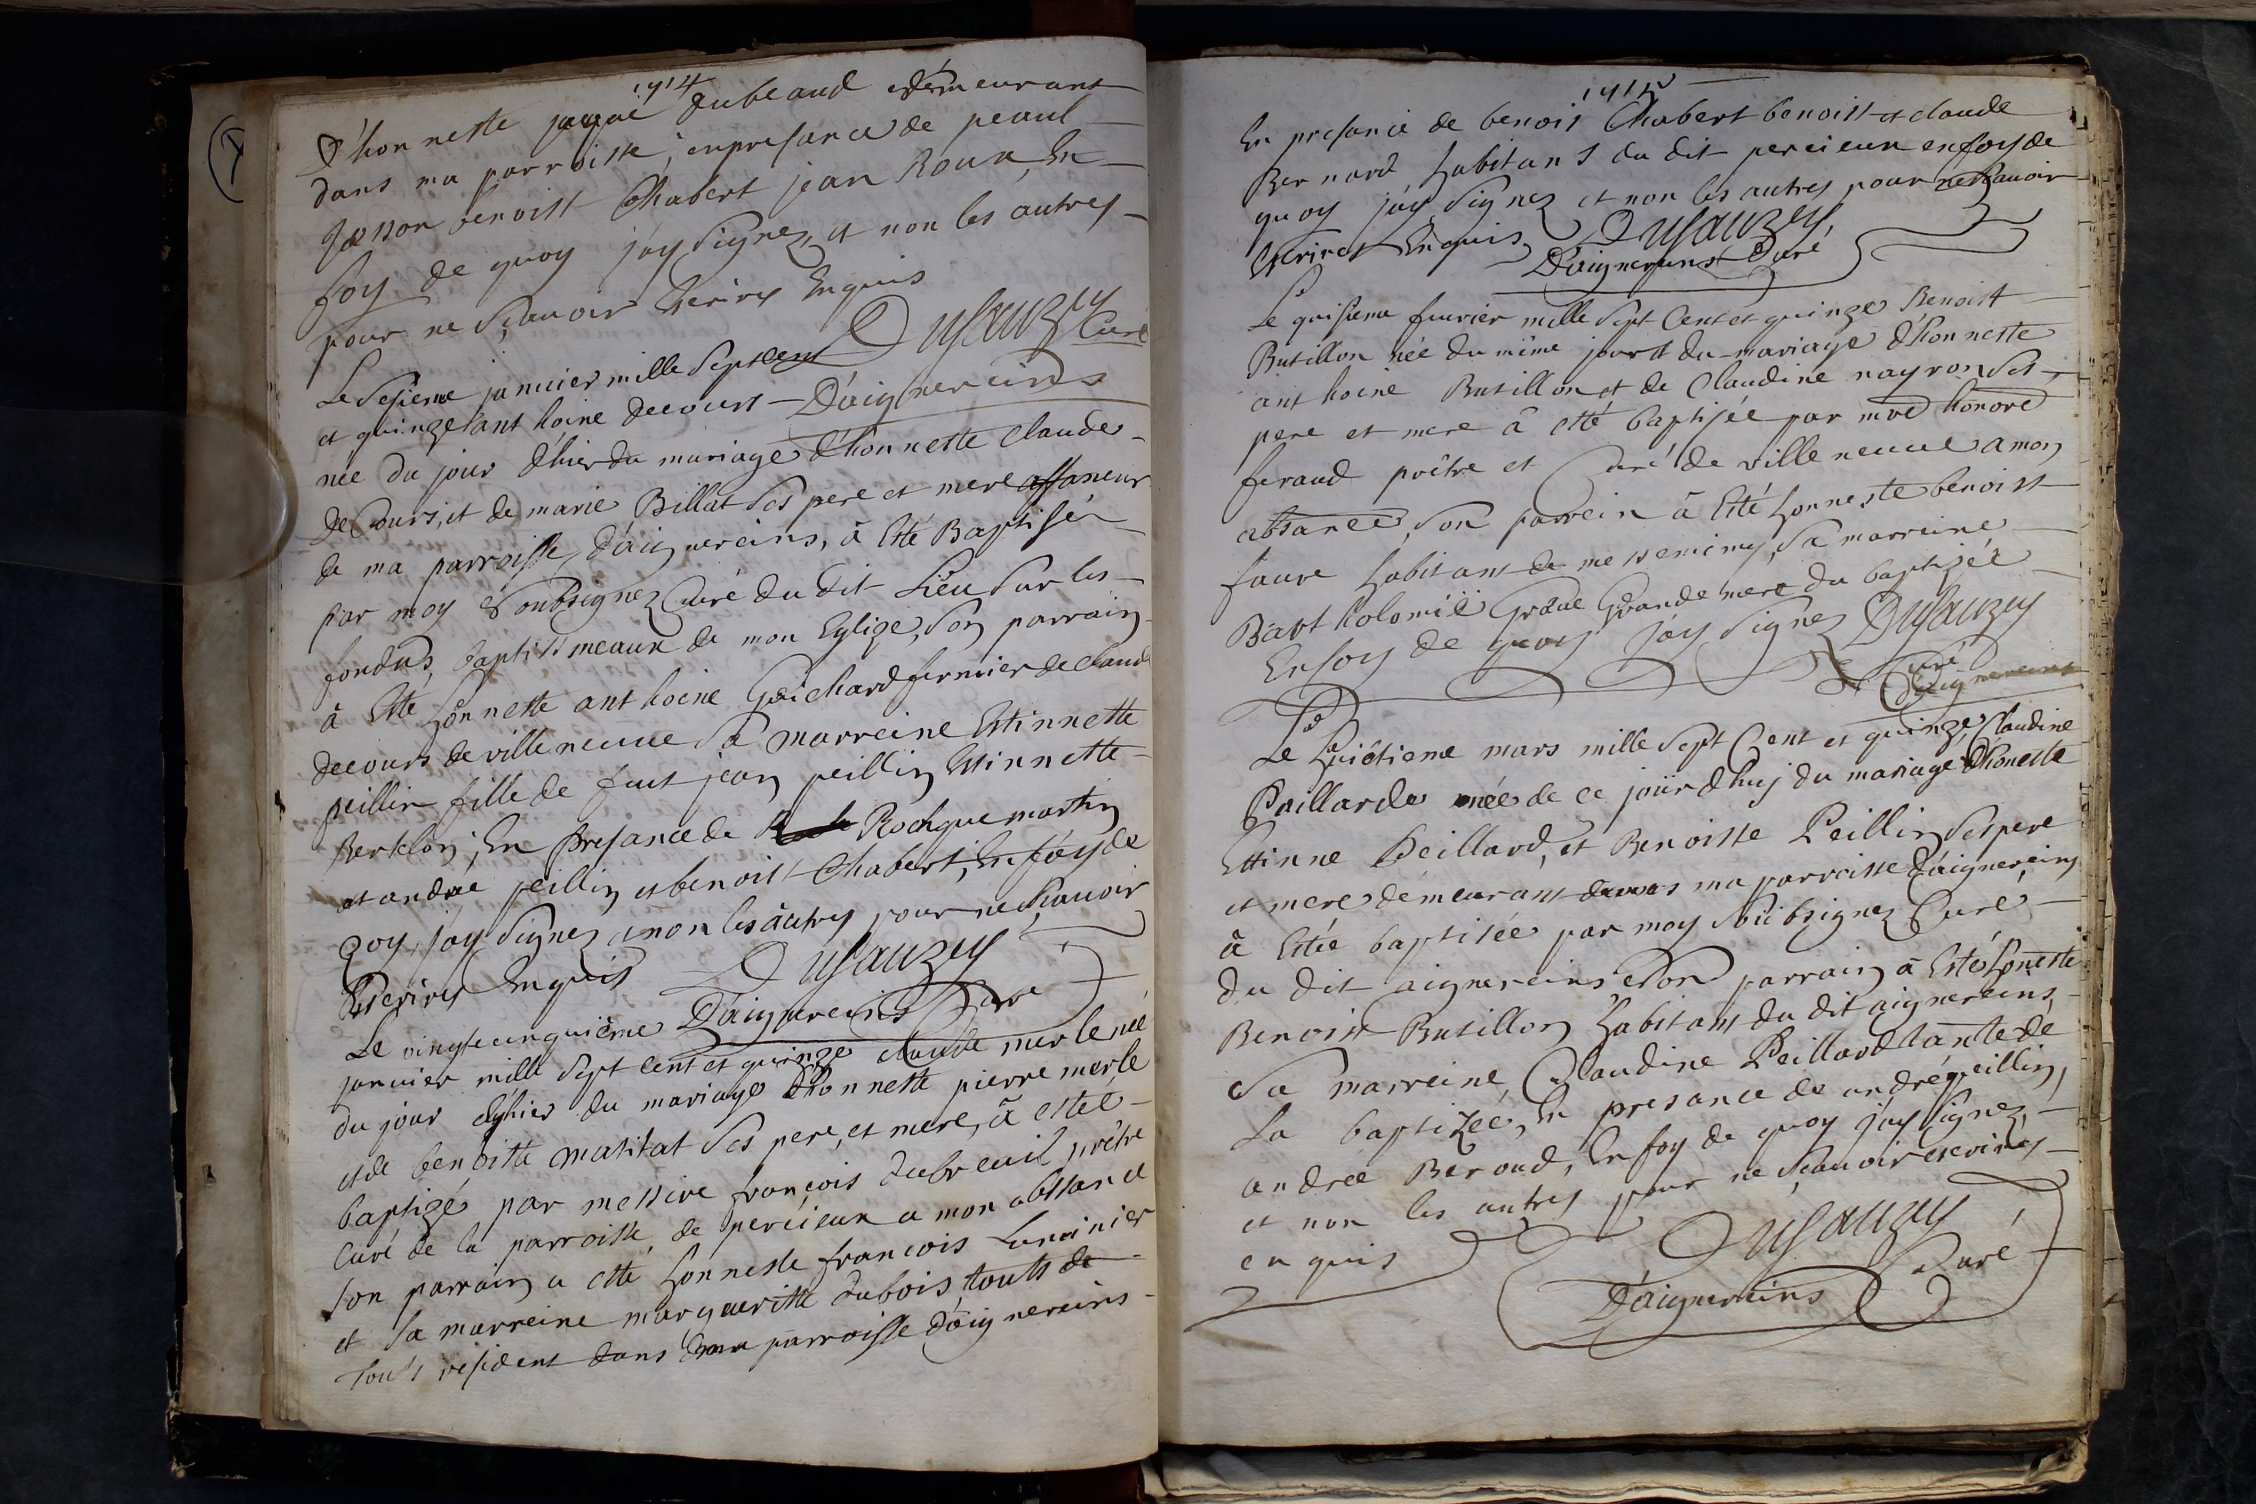 1714
D'honneste jaque dubeaud demeurant
dans ma parroisse, en presance de peaul
Jasson benoist Chabert jean Roux, En
foy de quoy j'ay signez, et non les autres
pour ne sçavoir Escrires Enquis
Dusauzey
Curé
Le sesieme janvier mille sept cent
D'aignereins
et quinze anthoine decours
née du jour d'hier du mariage d'honneste claude
deCours, et de marie Billat ses pere et mere affaneur
de ma parroisse d'aignereins, à Esté Baptisée
par moy soubsignez Curé du dit Lieu sur les
fonds baptismeaux de mon Eglize, son parrain
à Esté honneste anthoine Guichard fermier de claude
decours de villeneuve sa marreine Estinnette
peillin fille de fut jean peillin Estinnette
Berthelon, En presance de Rochque martin
et andrée peillin et benoist Chabert, En foy de
Qoy j'ay signez, et non les autres pour ne sçavoir
Escrires Enquis Dusauzey
Le vingtecinquième D'aignereins Curé
janvier mille sept cent et quinze claude merle née
du jour d'hier du mariage d'honneste pierre merle
et de benoitte matitat ses pere, et mere, à estée
baptizé par messire françois dubreuil prêtre
Curé de la parroisse de percieux a mon abssance
son parrain a etté honneste françois
et sa marreine margueritte dubois touts de
touts resident dans ma parroisse d'aignereins
1715
En presance de benoist Chabert benoist et claude
Bernard habitans du dit percieux en foy de
quoy j'ay signez et non les autres pour ne sçavoir
Escrires Enquis Dusauzey
D'aignereins Curé
Le fevrier mille sept Cent et quinze Benoist
Butillon née du même jour et du mariage d'honneste
anthoine Butillon et de Claudine nayron ses
pere et mere à etté baptisée par mre honoré
feraud prêtre et Curé de villeneuve a mon
absance, son parrein à Esté honneste benoist
faure habitant de messemimy, sa marreine
Bartholomié Grande mere du baptizée
En foy de quoy j'ay signez Dusauzey
Curé
D'aignereins
Le huictieme mars mille sept Cent et quinze, Claudine
Paillarde née de ce jourdhuj du mariage d'honeste
Ettinne Peillard, et Benoiste Peillin ses pere
et mere demeurant dans ma parroisse d'aignereins
à Estée baptisée par moy soubsignez Curé
du dit aignereins son parrain à Esté honeste
Benoist Butillon habitant du dit aignereins
Sa marreine Claudine Peillard tante de
La baptizée, En presance de andré peillin,
andrée Beroud, En foy de quoy j'ay signez,
et non les autres pour ne sçavoir escrires
enquis
Dusauzey
Curé
D'aignereins